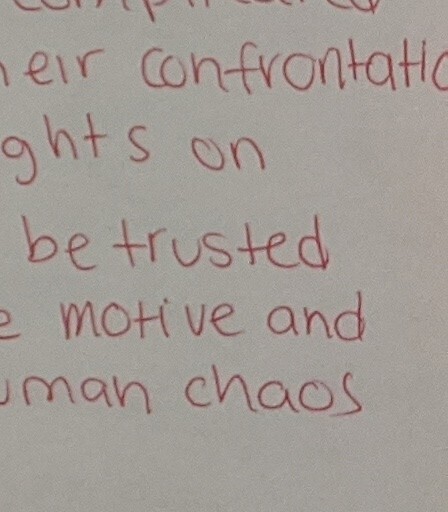 heir confrontatio
ghts on
be trusted
e motive and
uman chaos